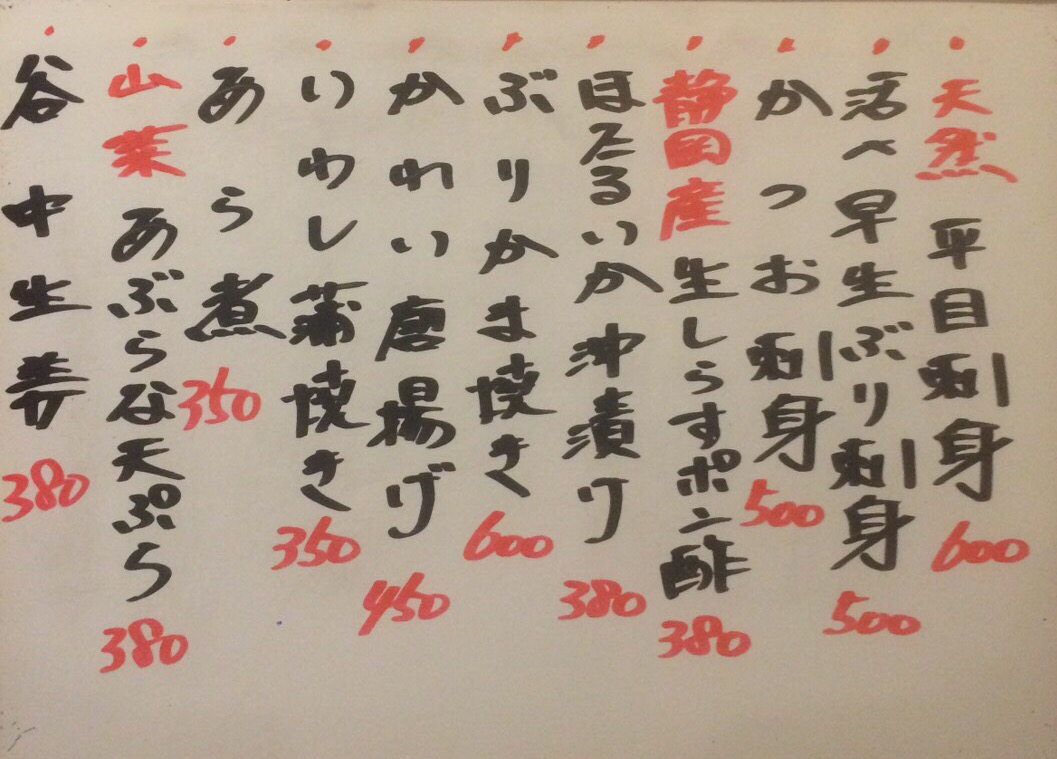 ・天然 平目刺身 600
・活〆早生ぶり刺身 500
・かつお刺身 500
・静岡産 生しらすポン酢 380
・ほたるいか沖漬け 380
・ぶりかま焼き 600
・かれい唐揚げ 450
・いわし蒲焼き 350
・あら煮 350
・山菜 あぶらな天ぷら 380
・谷中生姜 380